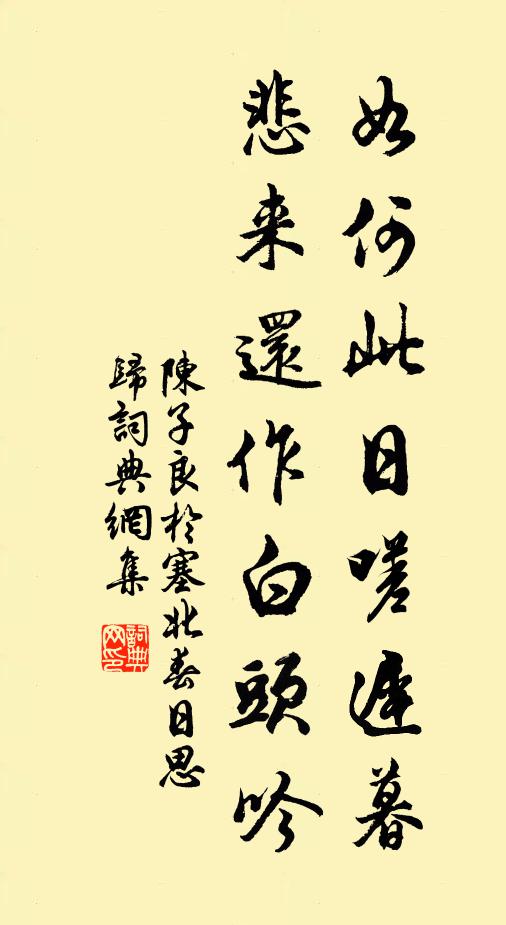 如何此日嗟遲暮
悲来還作白頭吟
陳子良於塞北春日思
歸詞典網集
詞典网印